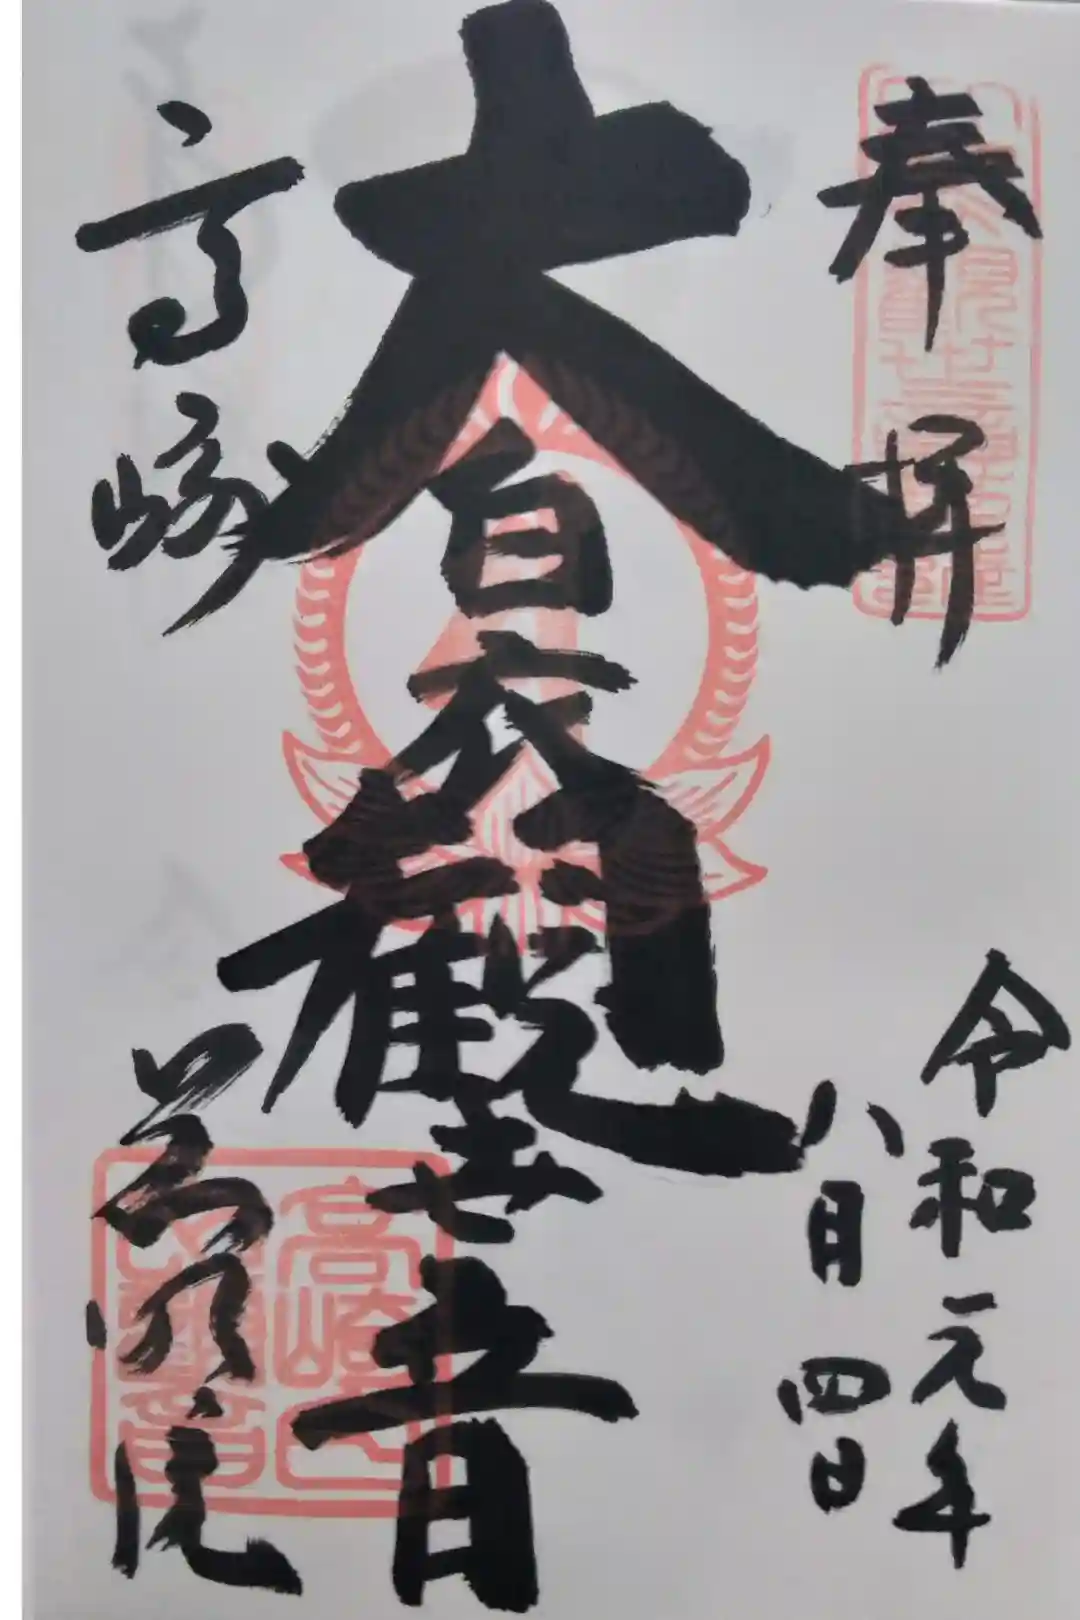 奉拝
令和元年
八月四日
大白衣観世音
高崎
慈眼院
高崎山